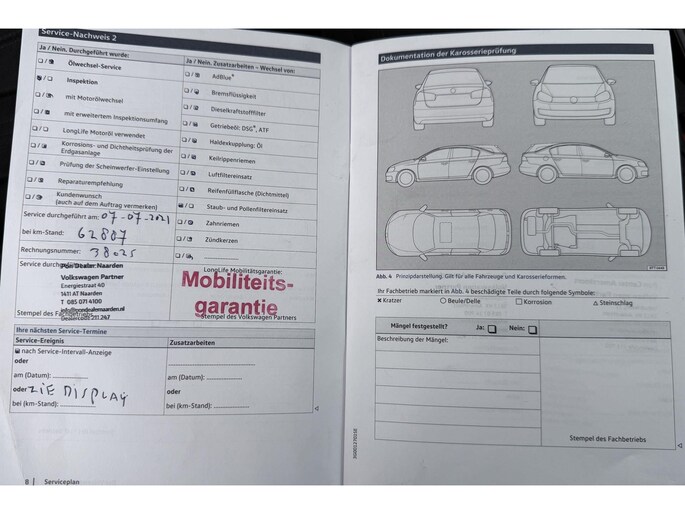 Service-Nachweis 2
Ja / Nein. Durchgeführt wurde:
Ölwechsel-Service
Inspektion
mit Motorölwechsel
mit erweitertem Inspektionsumfang
LongLife Motoröl verwendet
Korrosions- und Dichtheitsprüfung der
Erdgasanlage
Prüfung der Scheinwerfer-Einstellung
Reparaturempfehlung
Kundenwunsch
(auch auf dem Auftrag vermerken)
Ja / Nein. Zusatzarbeiten – Wechsel von:
AdBlue®
Bremsflüssigkeit
Dieselkraftstofffilter
Getriebeöl: DSG®, ATF
Haldexkupplung: Öl
Keilrippenriemen
Luftfiltereinsatz
Reifenfüllflasche (Dichtmittel)
Staub- und Pollenfiltereinsatz
Zahnriemen
Zündkerzen
Service durchgeführt am: 07-07-2021
bei km-Stand: 62887
Rechnungsnummer: 38025
Service durchgeführt
Pon Dealer Naarden
Volkswagen Partner
Energiestraat 40
1411 AT Naarden
T 085 071 4100
Dealercode 311 247
Stempel des Fachbetriebs
LongLife Mobilitätsgarantie:
Mobiliteits-
garantie
Stempel des Volkswagen Partners
Ihre nächsten Service-Termine
Service-Ereignis
Zusatzarbeiten
nach Service-Intervall-Anzeige
oder
am (Datum):
am (Datum):
oder ZIE DISPLAY
bei (km-Stand):
bei (km-Stand):
8 | Serviceplan
Dokumentation der Karosserieprüfung
Abb. 4 Prinzipdarstellung. Gilt für alle Fahrzeuge und Karosserieformen.
Ihr Fachbetrieb markiert in Abb. 4 beschädigte Teile durch folgende Symbole:
× Kratzer ○ Beule/Delle □ Korrosion △ Steinschlag
Mängel festgestellt? Ja: □ Nein: □
Beschreibung der Mängel:
Stempel des Fachbetriebs